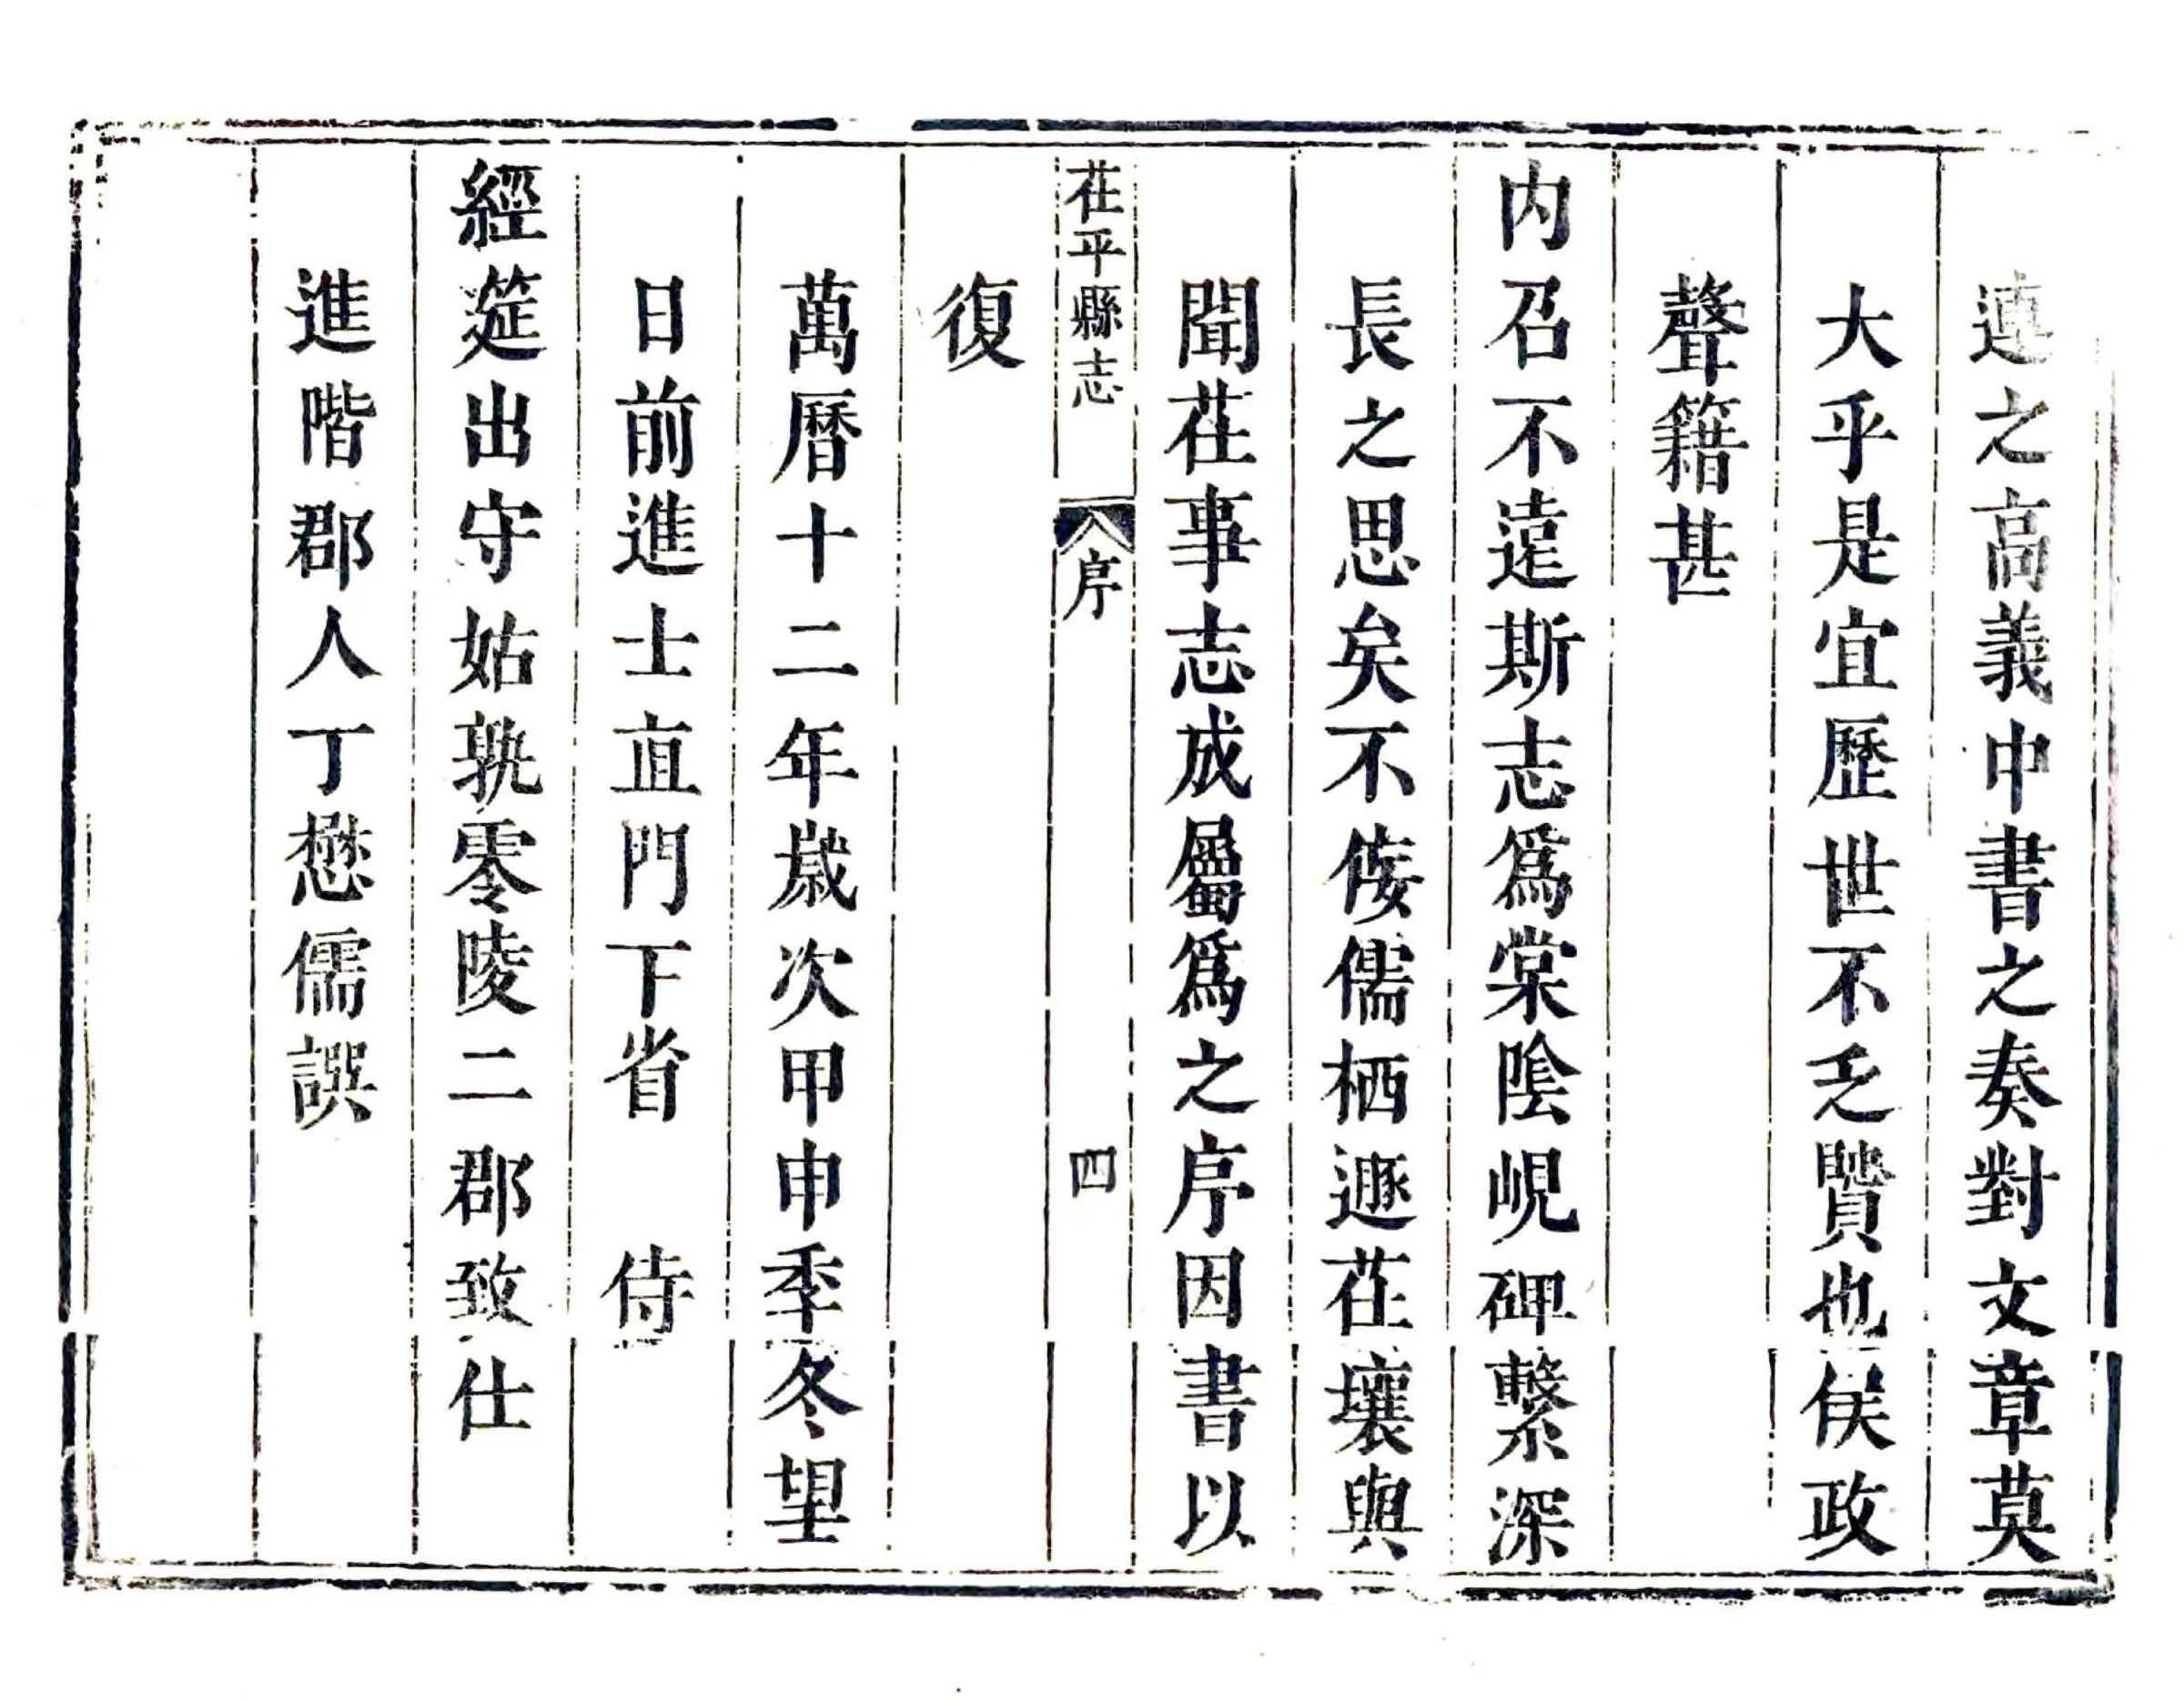 連之高義中書之奏對文章莫
大乎是宜歷世不乏賢也侯政
聲籍甚
內召不遠斯志爲棠陰峴碑繫深
長之思矣不佞儒栖遯茌壤與
聞茌事志成屬爲之序因書以
茌平縣志
序
四
復
萬曆十二年歲次甲申季冬望
日前進士直門下省 侍
經筵出守姑孰零陵二郡致仕
進階郡人丁懋儒譔